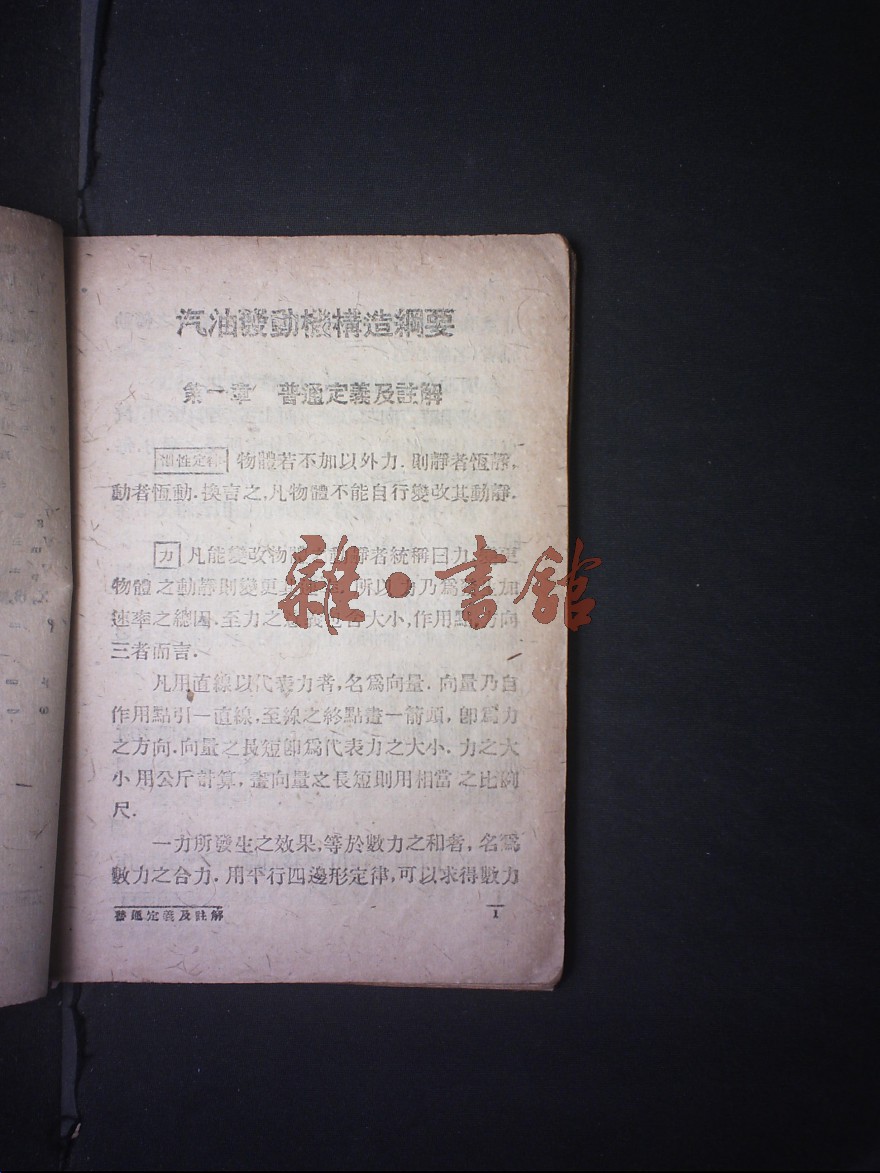 汽油發動機構造綱要
第一章 普通定義及註解
慣性定律 物體若不加以外力．則靜者恆靜，
動者恆動．換言之，凡物體不能自行變改其動靜．
力 凡能變改物體 動靜者統稱曰力． 更
物體之動靜則變更其 所以力乃爲 加
速率之總因．至力之意義包含大小，作用點，方向
三者而言．
凡用直線以代表力者，名爲向量．向量乃自
作用點引一直線，至線之終點畫一箭頭，卽爲力
之方向．向量之長短卽爲代表力之大小．力之大
小用公斤計算，畫向量之長短則用相當之比例
尺．
一力所發生之效果，等於數力之和者，名爲
數力之合力．用平行四邊形定律，可以求得數力
普通定義及註解 1
雜·書舘